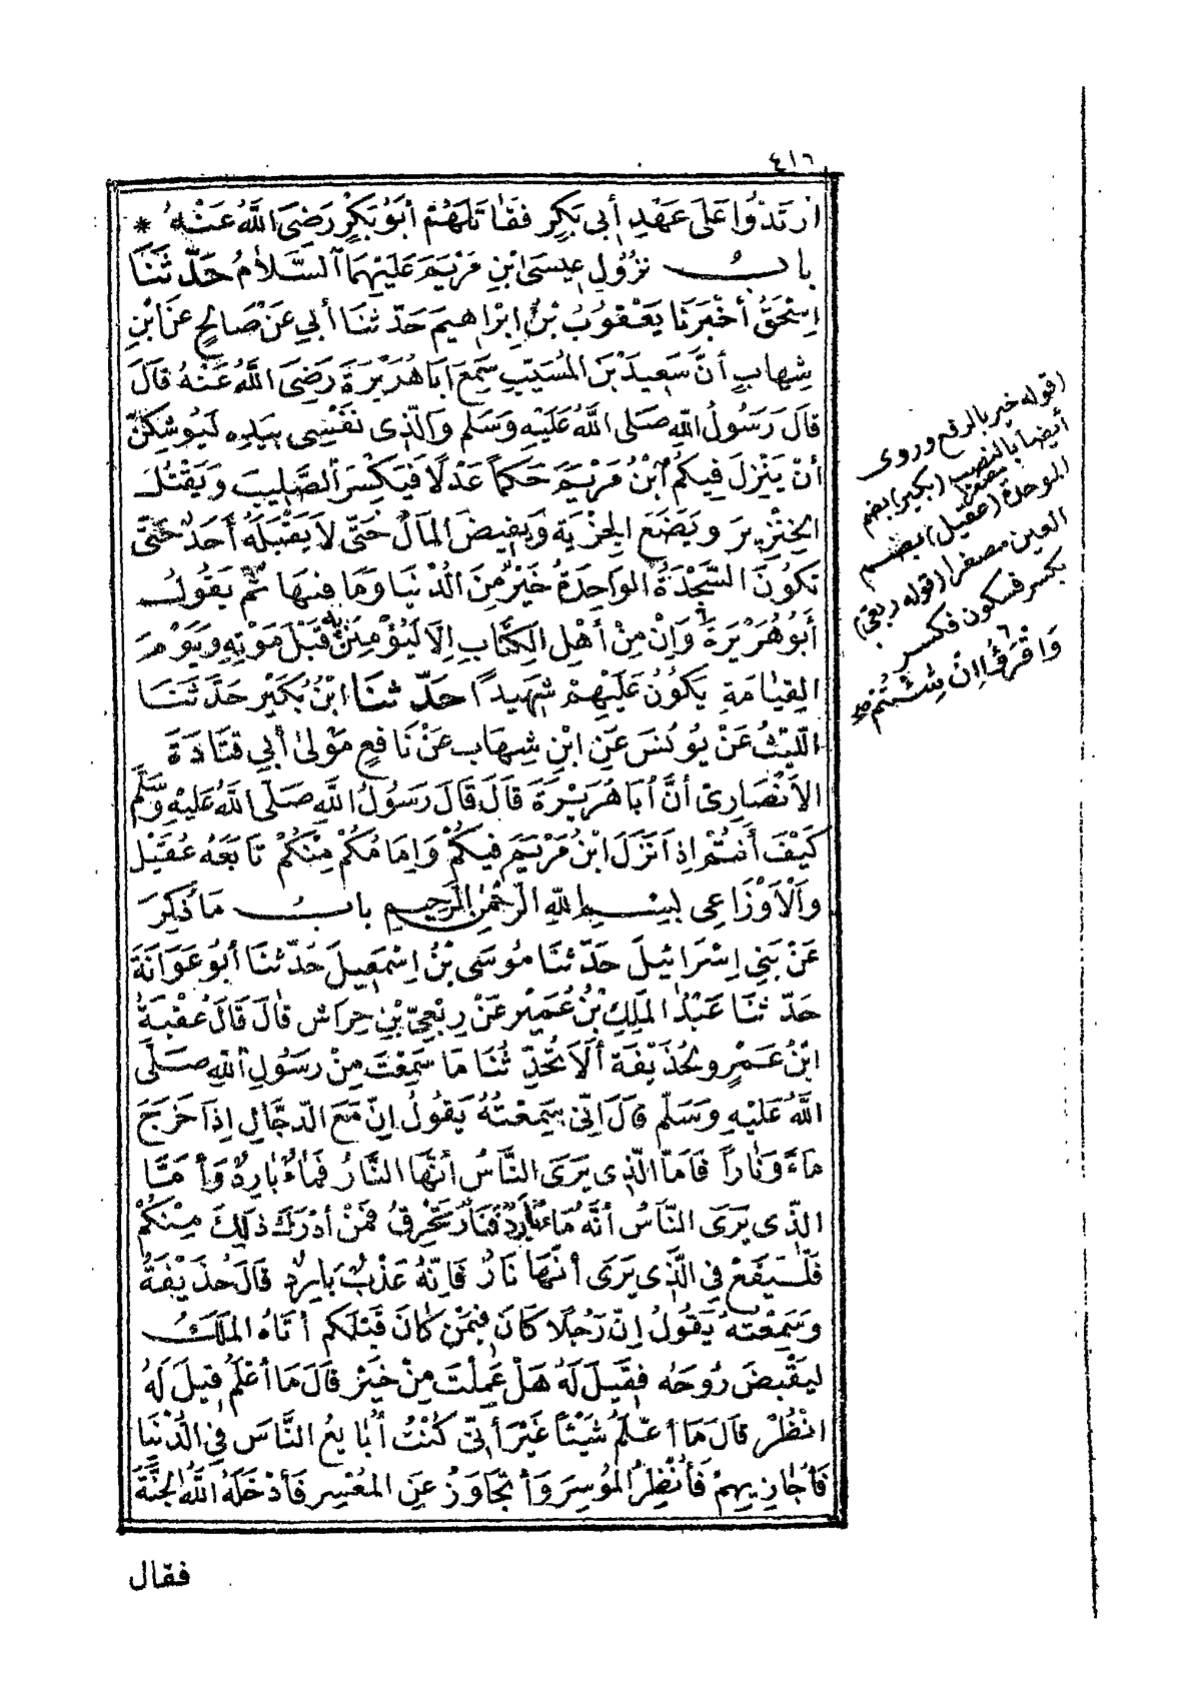 ٤١٦
ارْتَدُّوا عَلَى عَهْدِ أَبِي بَكْرٍ فَقَاتَلَهُمْ أَبُو بَكْرٍ رَضِيَ اللَّهُ عَنْهُ *
بَابُ نُزُولِ عِيسَى ابْنِ مَرْيَمَ عَلَيْهِمَا السَّلَامُ حَدَّثَنَا
إِسْحَقُ أَخْبَرَنَا يَعْقُوبُ بْنُ إِبْرَاهِيمَ حَدَّثَنَا أَبِي عَنْ صَالِحٍ عَنِ ابْنِ
شِهَابٍ أَنَّ سَعِيدَ بْنَ الْمُسَيِّبِ سَمِعَ أَبَا هُرَيْرَةَ رَضِيَ اللَّهُ عَنْهُ قَالَ
قَالَ رَسُولُ اللَّهِ صَلَّى اللَّهُ عَلَيْهِ وَسَلَّمَ وَالَّذِي نَفْسِي بِيَدِهِ لَيُوشِكَنَّ
أَنْ يَنْزِلَ فِيكُمُ ابْنُ مَرْيَمَ حَكَمًا عَدْلًا فَيَكْسِرَ الصَّلِيبَ وَيَقْتُلَ
الْخِنْزِيرَ وَيَضَعَ الْجِزْيَةَ وَيَفِيضَ الْمَالُ حَتَّى لَا يَقْبَلَهُ أَحَدٌ حَتَّى
تَكُونَ السَّجْدَةُ الْوَاحِدَةُ خَيْرٌ مِنَ الدُّنْيَا وَمَا فِيهَا ثُمَّ يَقُولُ
أَبُو هُرَيْرَةَ وَإِنْ مِنْ أَهْلِ الْكِتَابِ إِلَّا لَيُؤْمِنَنَّ بِهِ قَبْلَ مَوْتِهِ وَيَوْمَ
الْقِيَامَةِ يَكُونُ عَلَيْهِمْ شَهِيدًا حَدَّثَنَا ابْنُ بُكَيْرٍ حَدَّثَنَا
اللَّيْثُ عَنْ يُونُسَ عَنِ ابْنِ شِهَابٍ عَنْ نَافِعٍ مَوْلَى أَبِي قَتَادَةَ
الْأَنْصَارِيِّ أَنَّ أَبَا هُرَيْرَةَ قَالَ قَالَ رَسُولُ اللَّهِ صَلَّى اللَّهُ عَلَيْهِ وَسَلَّمَ
كَيْفَ أَنْتُمْ إِذَا نَزَلَ ابْنُ مَرْيَمَ فِيكُمْ وَإِمَامُكُمْ مِنْكُمْ تَابَعَهُ عُقَيْلٌ
وَالْأَوْزَاعِي بِسْمِ اللَّهِ الرَّحْمَنِ الرَّحِيمِ بَابُ مَا ذُكِرَ
عَنْ بَنِي إِسْرَائِيلَ حَدَّثَنَا مُوسَى بْنُ إِسْمَعِيلَ حَدَّثَنَا أَبُو عَوَانَةَ
حَدَّثَنَا عَبْدُ الْمَلِكِ بْنُ عُمَيْرٍ عَنْ رِبْعِيِّ بْنِ حِرَاشٍ قَالَ قَالَ عُقْبَةُ
ابْنُ عَمْرٍو لِحُذَيْفَةَ أَلَا تُحَدِّثُنَا مَا سَمِعْتَ مِنْ رَسُولِ اللَّهِ صَلَّى
اللَّهُ عَلَيْهِ وَسَلَّمَ قَالَ إِنِّي سَمِعْتُهُ يَقُولُ إِنَّ مَعَ الدَّجَّالِ إِذَا خَرَجَ
مَاءً وَنَارًا فَأَمَّا الَّذِي يَرَى النَّاسُ أَنَّهَا النَّارُ فَمَاءٌ بَارِدٌ وَأَمَّا
الَّذِي يَرَى النَّاسُ أَنَّهُ مَاءٌ بَارِدٌ فَنَارٌ تُحْرِقُ فَمَنْ أَدْرَكَ ذَلِكَ مِنْكُمْ
فَلْيَقَعْ فِي الَّذِي يَرَى أَنَّهَا نَارٌ فَإِنَّهُ عَذْبٌ بَارِدٌ قَالَ حُذَيْفَةُ
وَسَمِعْتُهُ يَقُولُ إِنَّ رَجُلًا كَانَ فِيمَنْ كَانَ قَبْلَكُمْ أَتَاهُ الْمَلَكُ
لِيَقْبِضَ رُوحَهُ فَقِيلَ لَهُ هَلْ عَمِلْتَ مِنْ خَيْرٍ قَالَ مَا أَعْلَمُ قِيلَ لَهُ
انْظُرْ قَالَ مَا أَعْلَمُ شَيْئًا غَيْرَ أَنِّي كُنْتُ أُبَايِعُ النَّاسَ فِي الدُّنْيَا
فَأُجَازِيهِمْ فَأُنْظِرُ الْمُوسِرَ وَأَتَجَاوَزُ عَنِ الْمُعْسِرِ فَأَدْخَلَهُ اللَّهُ الْجَنَّةَ
فقال
(قوله خير بالرفع وروى
أيضا بالنصب (بكير) بضم
الموحدة مصغرا (عقيل) بضم
العين مصغرا (قوله ربعي)
بكسر فسكون فكسر
وَاقْرَؤُا إِنْ شِئْتُمْ